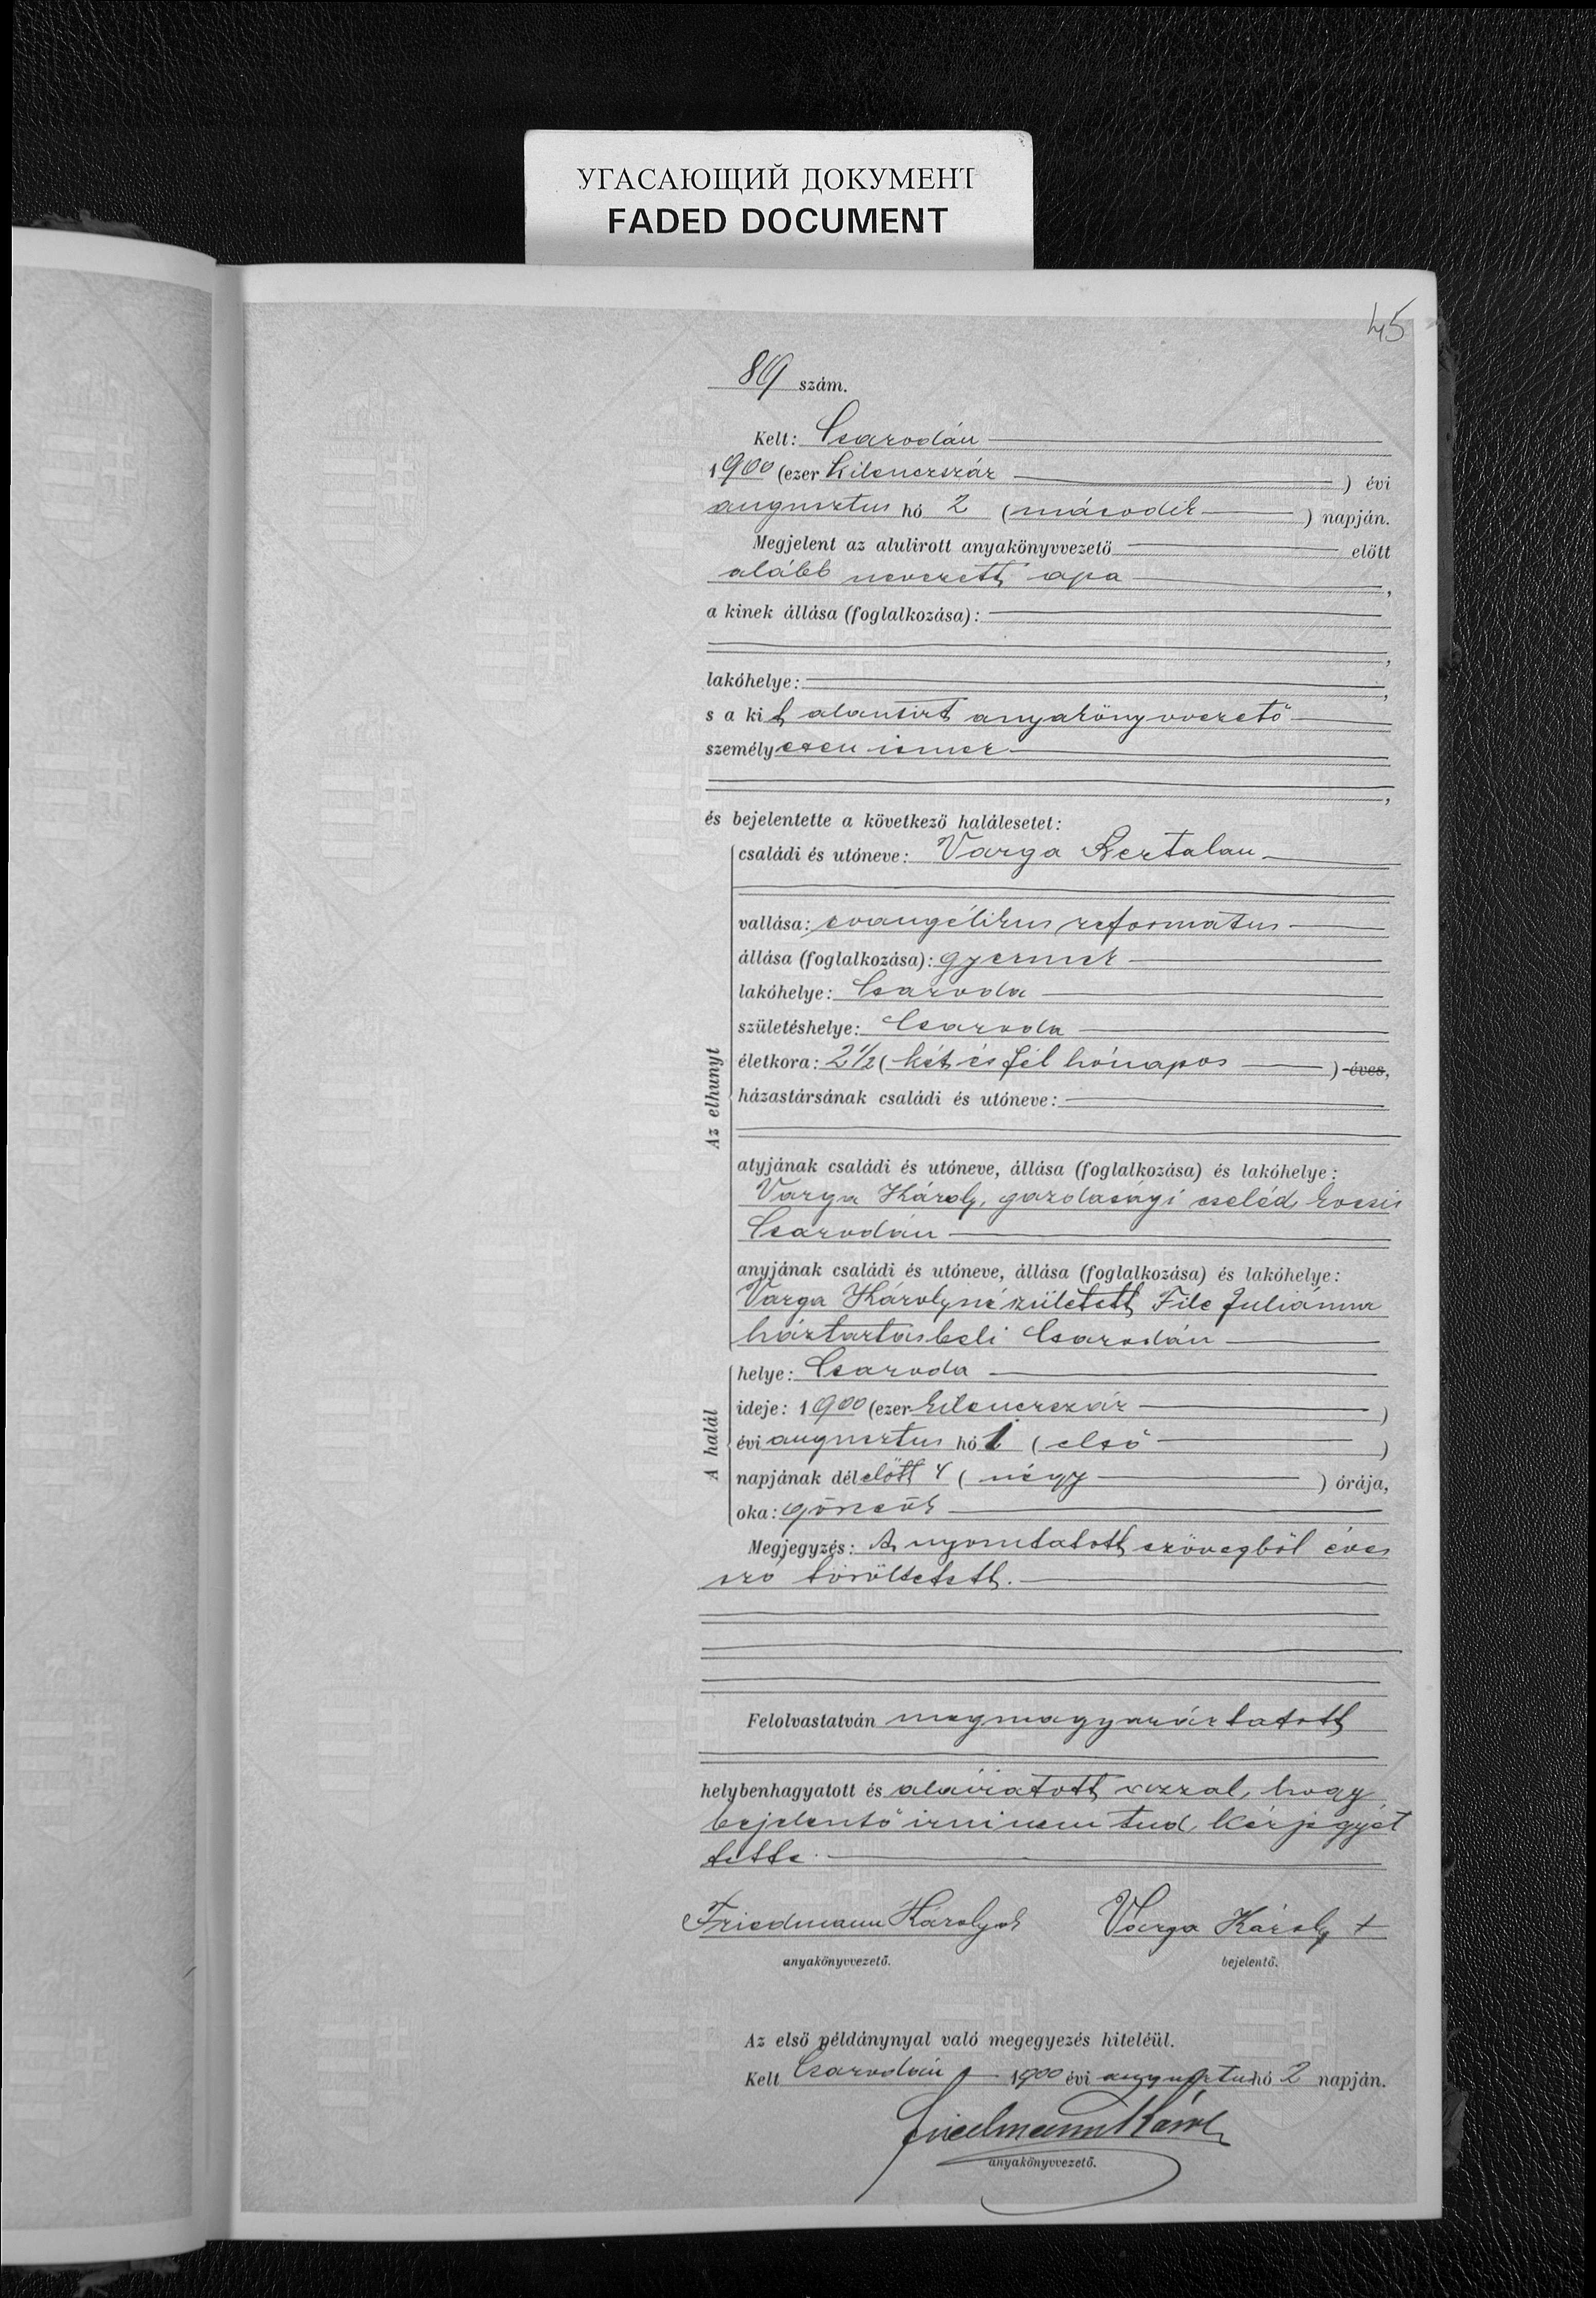 УГАСАЮЩИЙ ДОКУМЕНТ
FADED DOCUMENT
45
89 szám.
Kelt: Csarodán
1900 (ezer kilenczszáz ) évi
augusztus hó 2 (második ) napján.
Megjelent az alulirott anyakönyvvezető előtt
alább nevezett apa ,
a kinek állása (foglalkozása):
,
lakóhelye: ,
s a kit alantirt anyakönyvvezető
személyesen ismer
,
és bejelentette a következő halálesetet:
Az elhunyt
családi és utóneve: Varga Bertalan
vallása: evangélikus református
állása (foglalkozása): gyermek
lakóhelye: Csaroda
születéshelye: Csaroda
életkora: 2 1/2 ( két és fél hónapos ) éves,
házastársának családi és utóneve:
atyjának családi és utóneve, állása (foglalkozása) és lakóhelye:
Varga Károly, gazdasági cseléd, kocsis
Csarodán
anyjának családi és utóneve, állása (foglalkozása) és lakóhelye:
Varga Károlyné született File Juliánna
háztartásbeli Csarodán
A halál
helye: Csaroda
ideje: 1900 (ezer kilenczszáz )
évi augusztus hó 1 ( első )
napjának délelőtt 4 ( négy ) órája,
oka: görcsök
Megjegyzés: A nyomtatott szövegből éves
szó töröltetett.
Felolvastatván megmagyaráztatott
helybenhagyatott és aláiratott azzal, hogy
bejelentő irni nem tud, kézjegyét
tette.
Friedmann Károly Varga Károly +
anyakönyvvezető. bejelentő.
Az első példánynyal való megegyezés hiteléül.
Kelt Csarodán 1900 évi augusztus hó 2 napján.
Friedmann Károly
anyakönyvvezető.